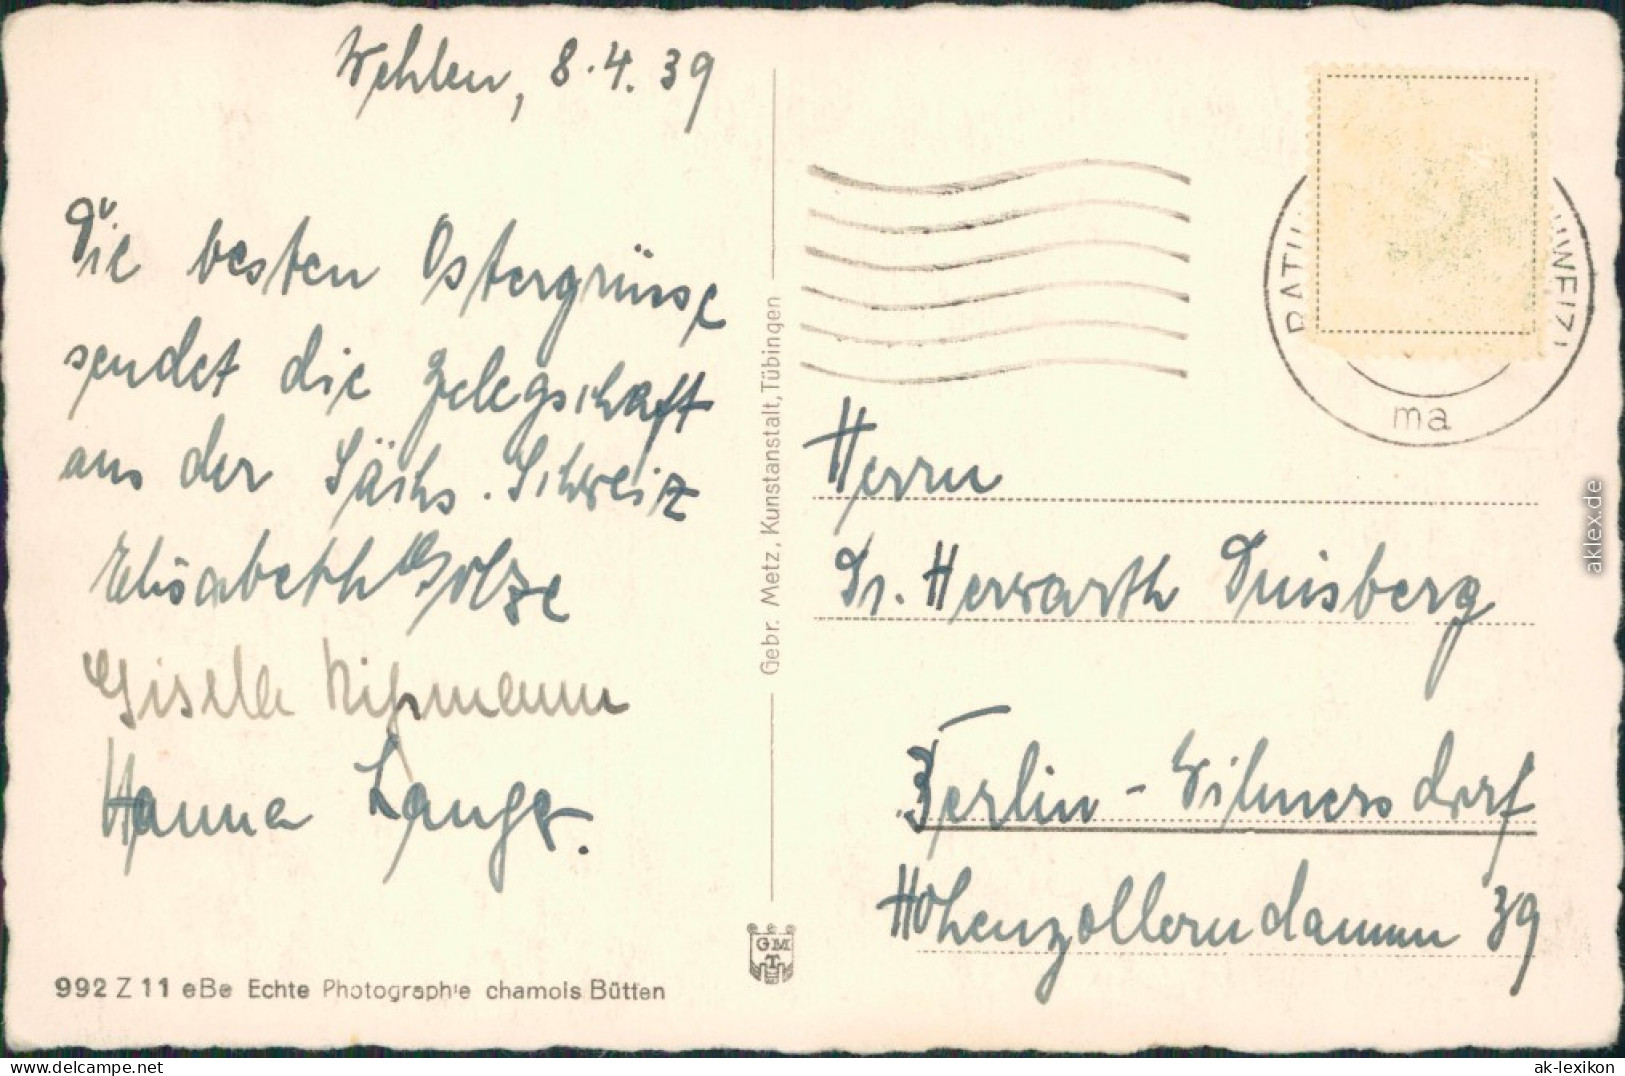 Wehlen, 8.4.39
Die besten Ostergrüsse
sendet die Belegschaft
aus der Sächs. Schweiz
Elisabeth Golze
Gisela
Hanna Lange.
992 Z 11 eBe Echte Photographie chamois Bütten
Gebr. Metz, Kunstanstalt, Tübingen
GMT
ma
Herrn
Dr. Herwarth Duisberg
Berlin-Wilmersdorf
Hohenzollerndamm 39
aklex.de
delcampe.net
ak-lexikon